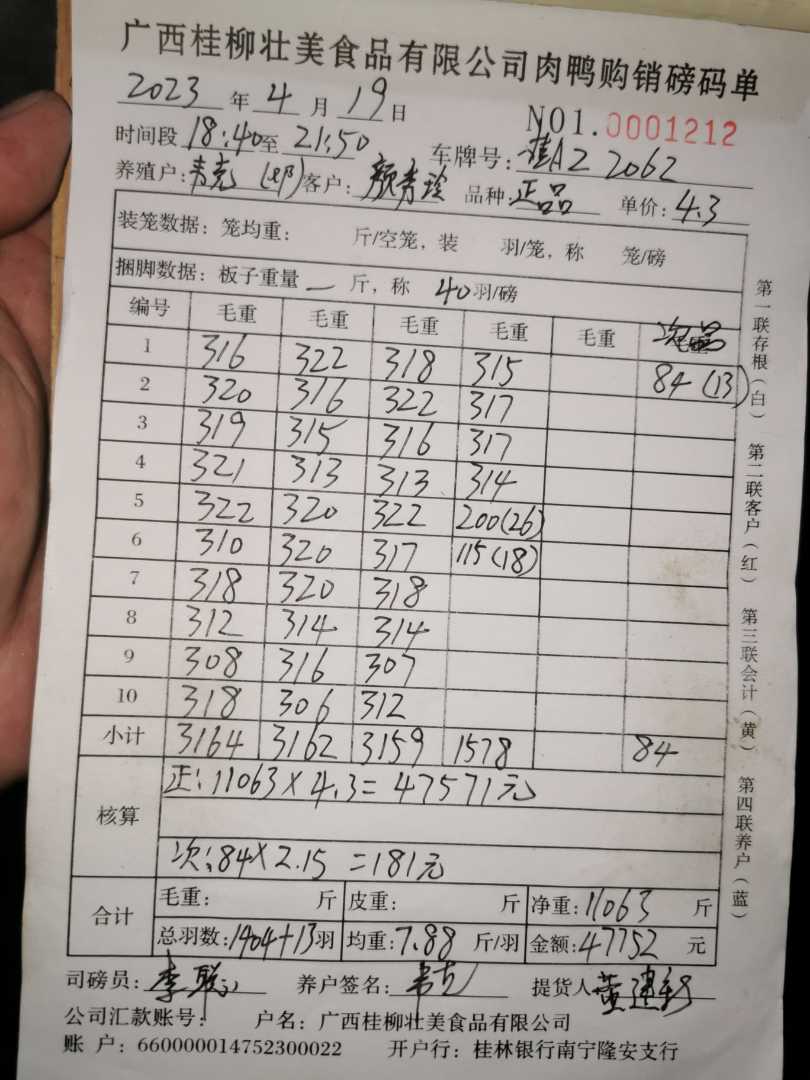 广西桂柳壮美食品有限公司肉鸭购销磅码单
2023 年 4 月 19 日 NO1.0001212
时间段 18:40至 21:50 车牌号: 桂AZ2062
养殖户: 韦克 客户: 颜秀珍 品种: 正品 单价: 4.3
装笼数据: 笼均重: 斤/空笼, 装 羽/笼, 称 笼/磅
捆脚数据: 板子重量 — 斤, 称 40羽/磅
编号 毛重 毛重 毛重 毛重 毛重 次品
1 316 322 318 315 84(13)
2 320 316 322 317
3 319 315 316 317
4 321 313 313 314
5 322 320 322 200(26)
6 310 320 317 115(18)
7 318 320 318
8 312 314 314
9 308 316 307
10 318 306 312
小计 3164 3162 3159 1578 84
核算
正: 11063×4.3= 47571元
次: 84×2.15 =181元
合计
毛重: 斤 皮重: 斤 净重: 11063 斤
总羽数: 1404+13羽 均重: 7.88 斤/羽 金额: 47752 元
司磅员: 李 养户签名: 韦克 提货人 黄建
公司汇款账号: 户名: 广西桂柳壮美食品有限公司
账 户: 660000014752300022 开户行: 桂林银行南宁隆安支行
第一联存根(白) 第二联客户(红) 第三联会计(黄) 第四联养户(蓝)